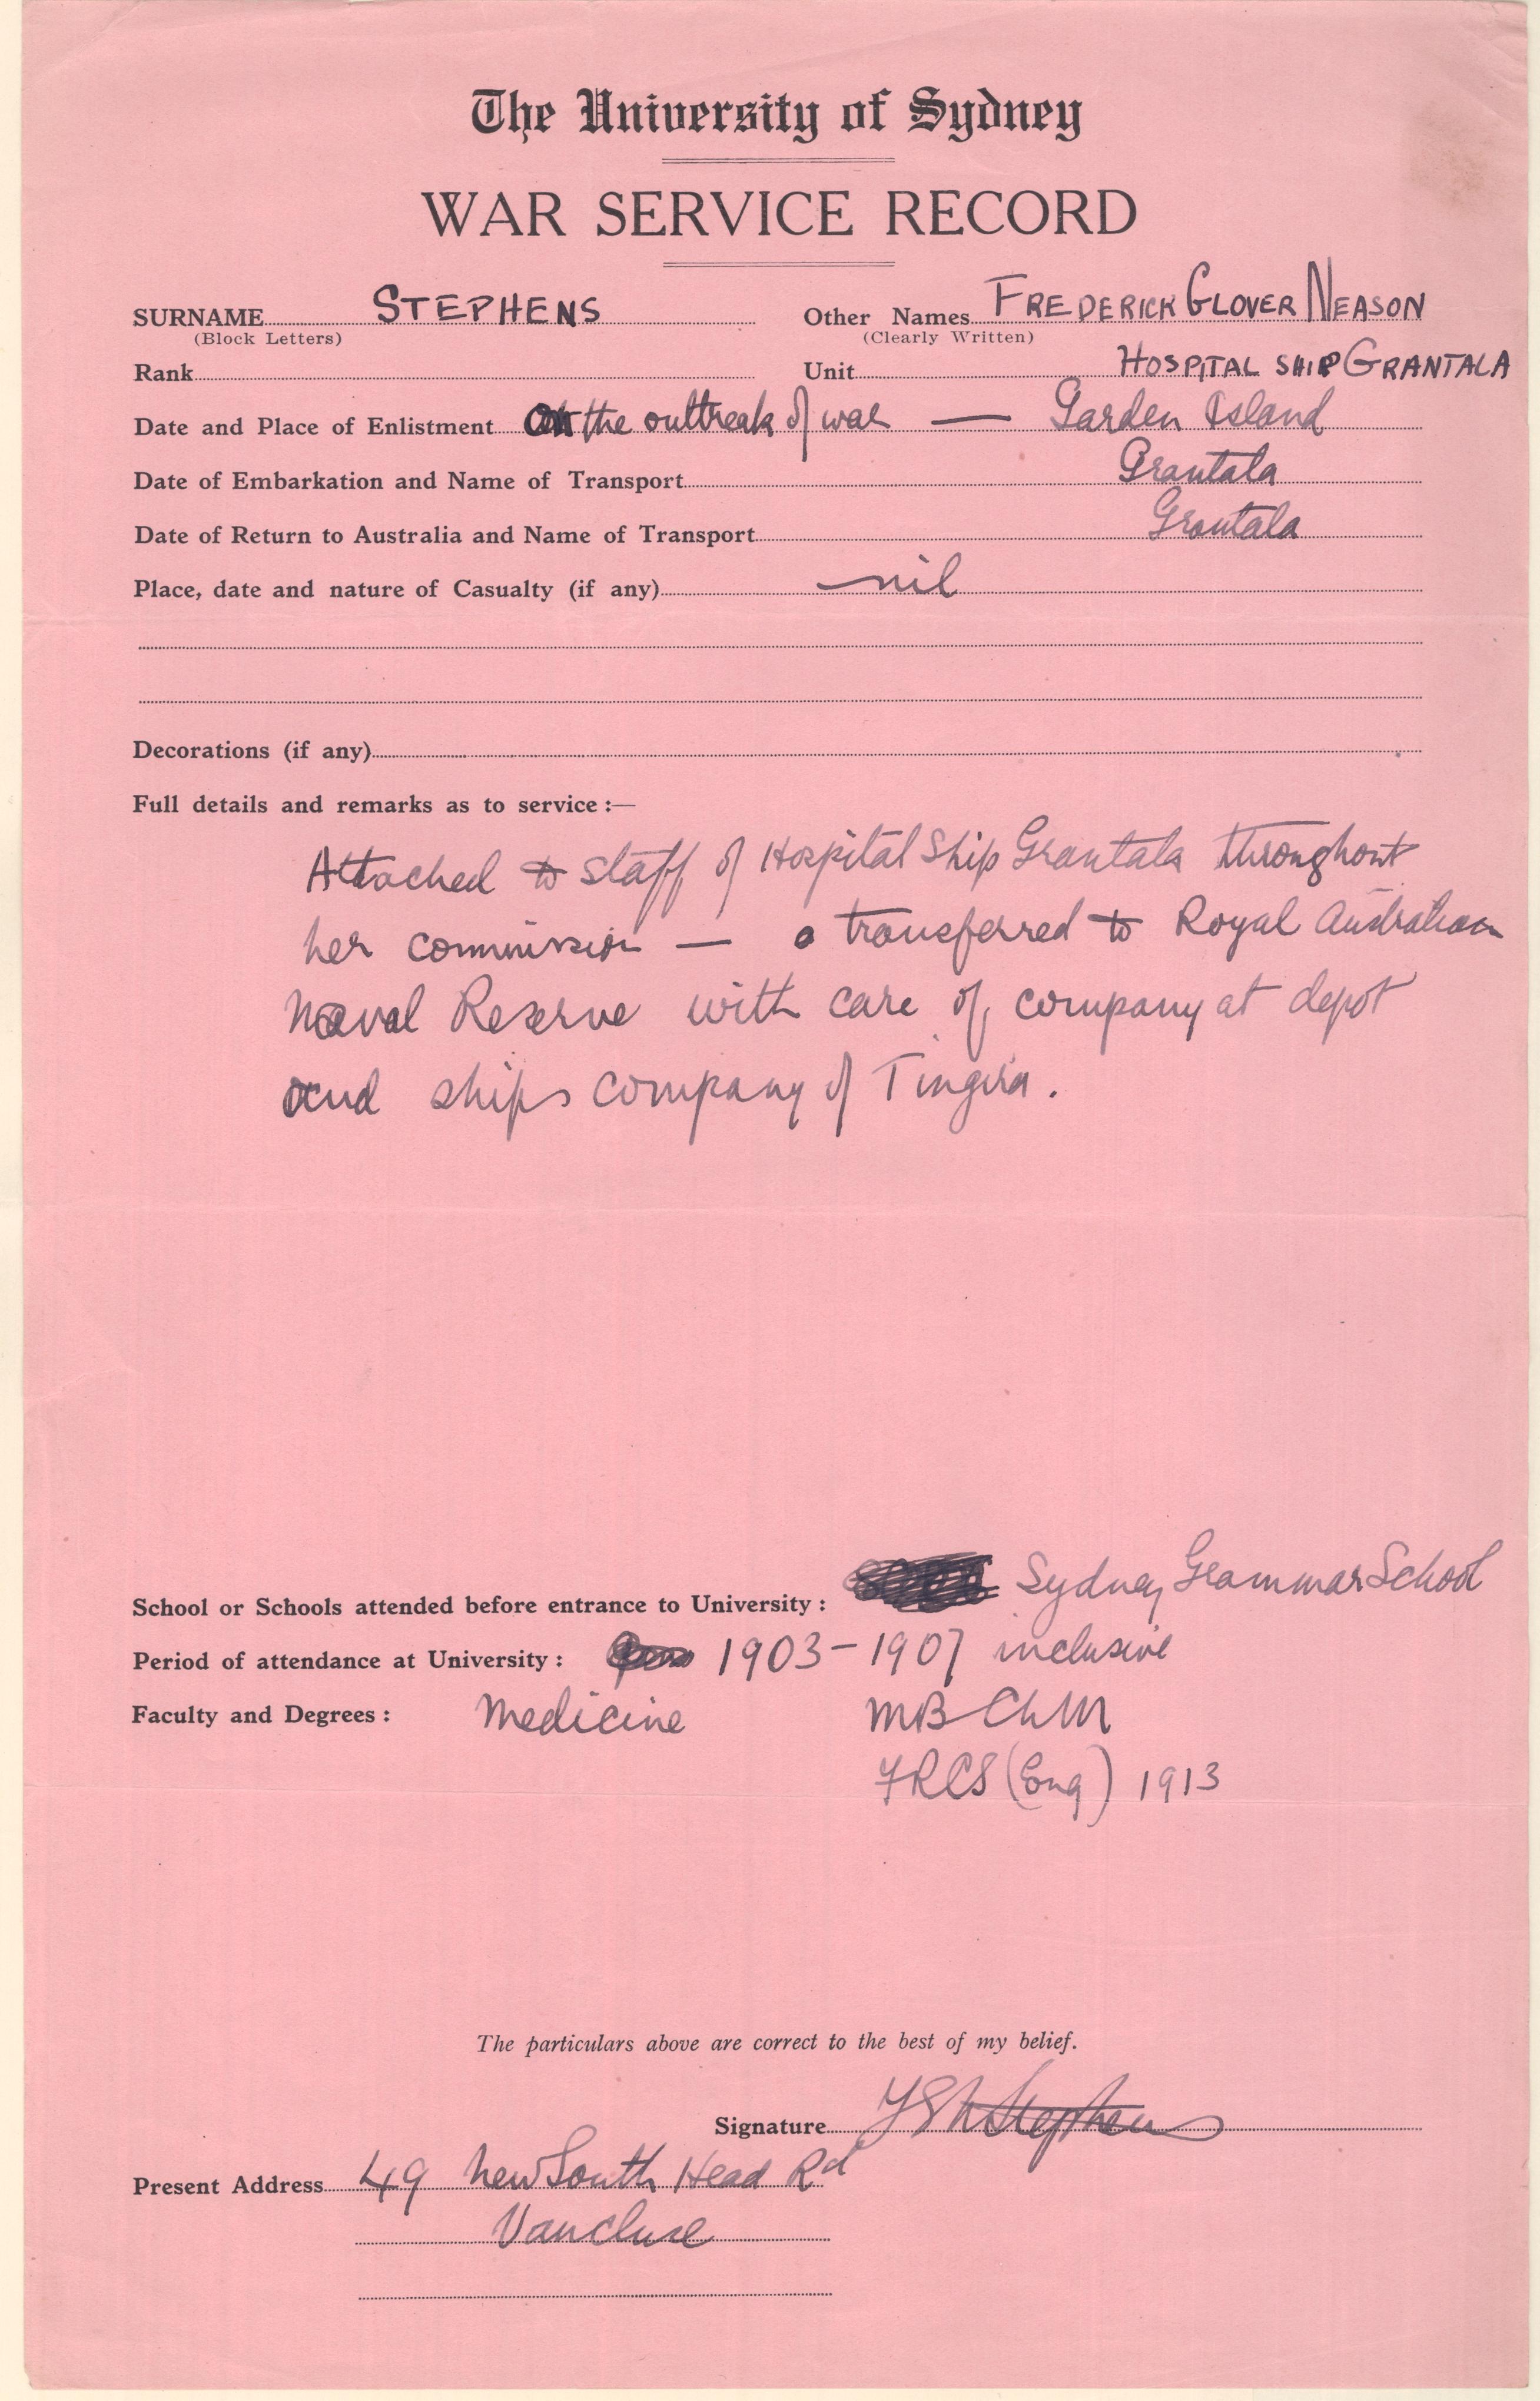 The University of Sydney
WAR SERVICE RECORD
SURNAME STEPHENS Other Names FREDERICK GLOVER NEASON
(Block Letters) (Clearly Written)
Rank Unit HOSPITAL SHIP GRANTALA
Date and Place of Enlistment the outbreak of war — Garden Island
Date of Embarkation and Name of Transport Grantala
Date of Return to Australia and Name of Transport Grantala
Place, date and nature of Casualty (if any) nil
Decorations (if any)
Full details and remarks as to service :—
Attached to staff of Hospital Ship Grantala throughout
her commission — transferred to Royal Australian
Naval Reserve with care of company at depot
and ships company of Tingira.
School or Schools attended before entrance to University : Sydney Grammar School
Period of attendance at University : 1903 - 1907 inclusive
Faculty and Degrees : Medicine MB ChM
FRCS (Eng) 1913
The particulars above are correct to the best of my belief.
Signature FGN Stephens
Present Address 49 New South Head Rd
Vaucluse